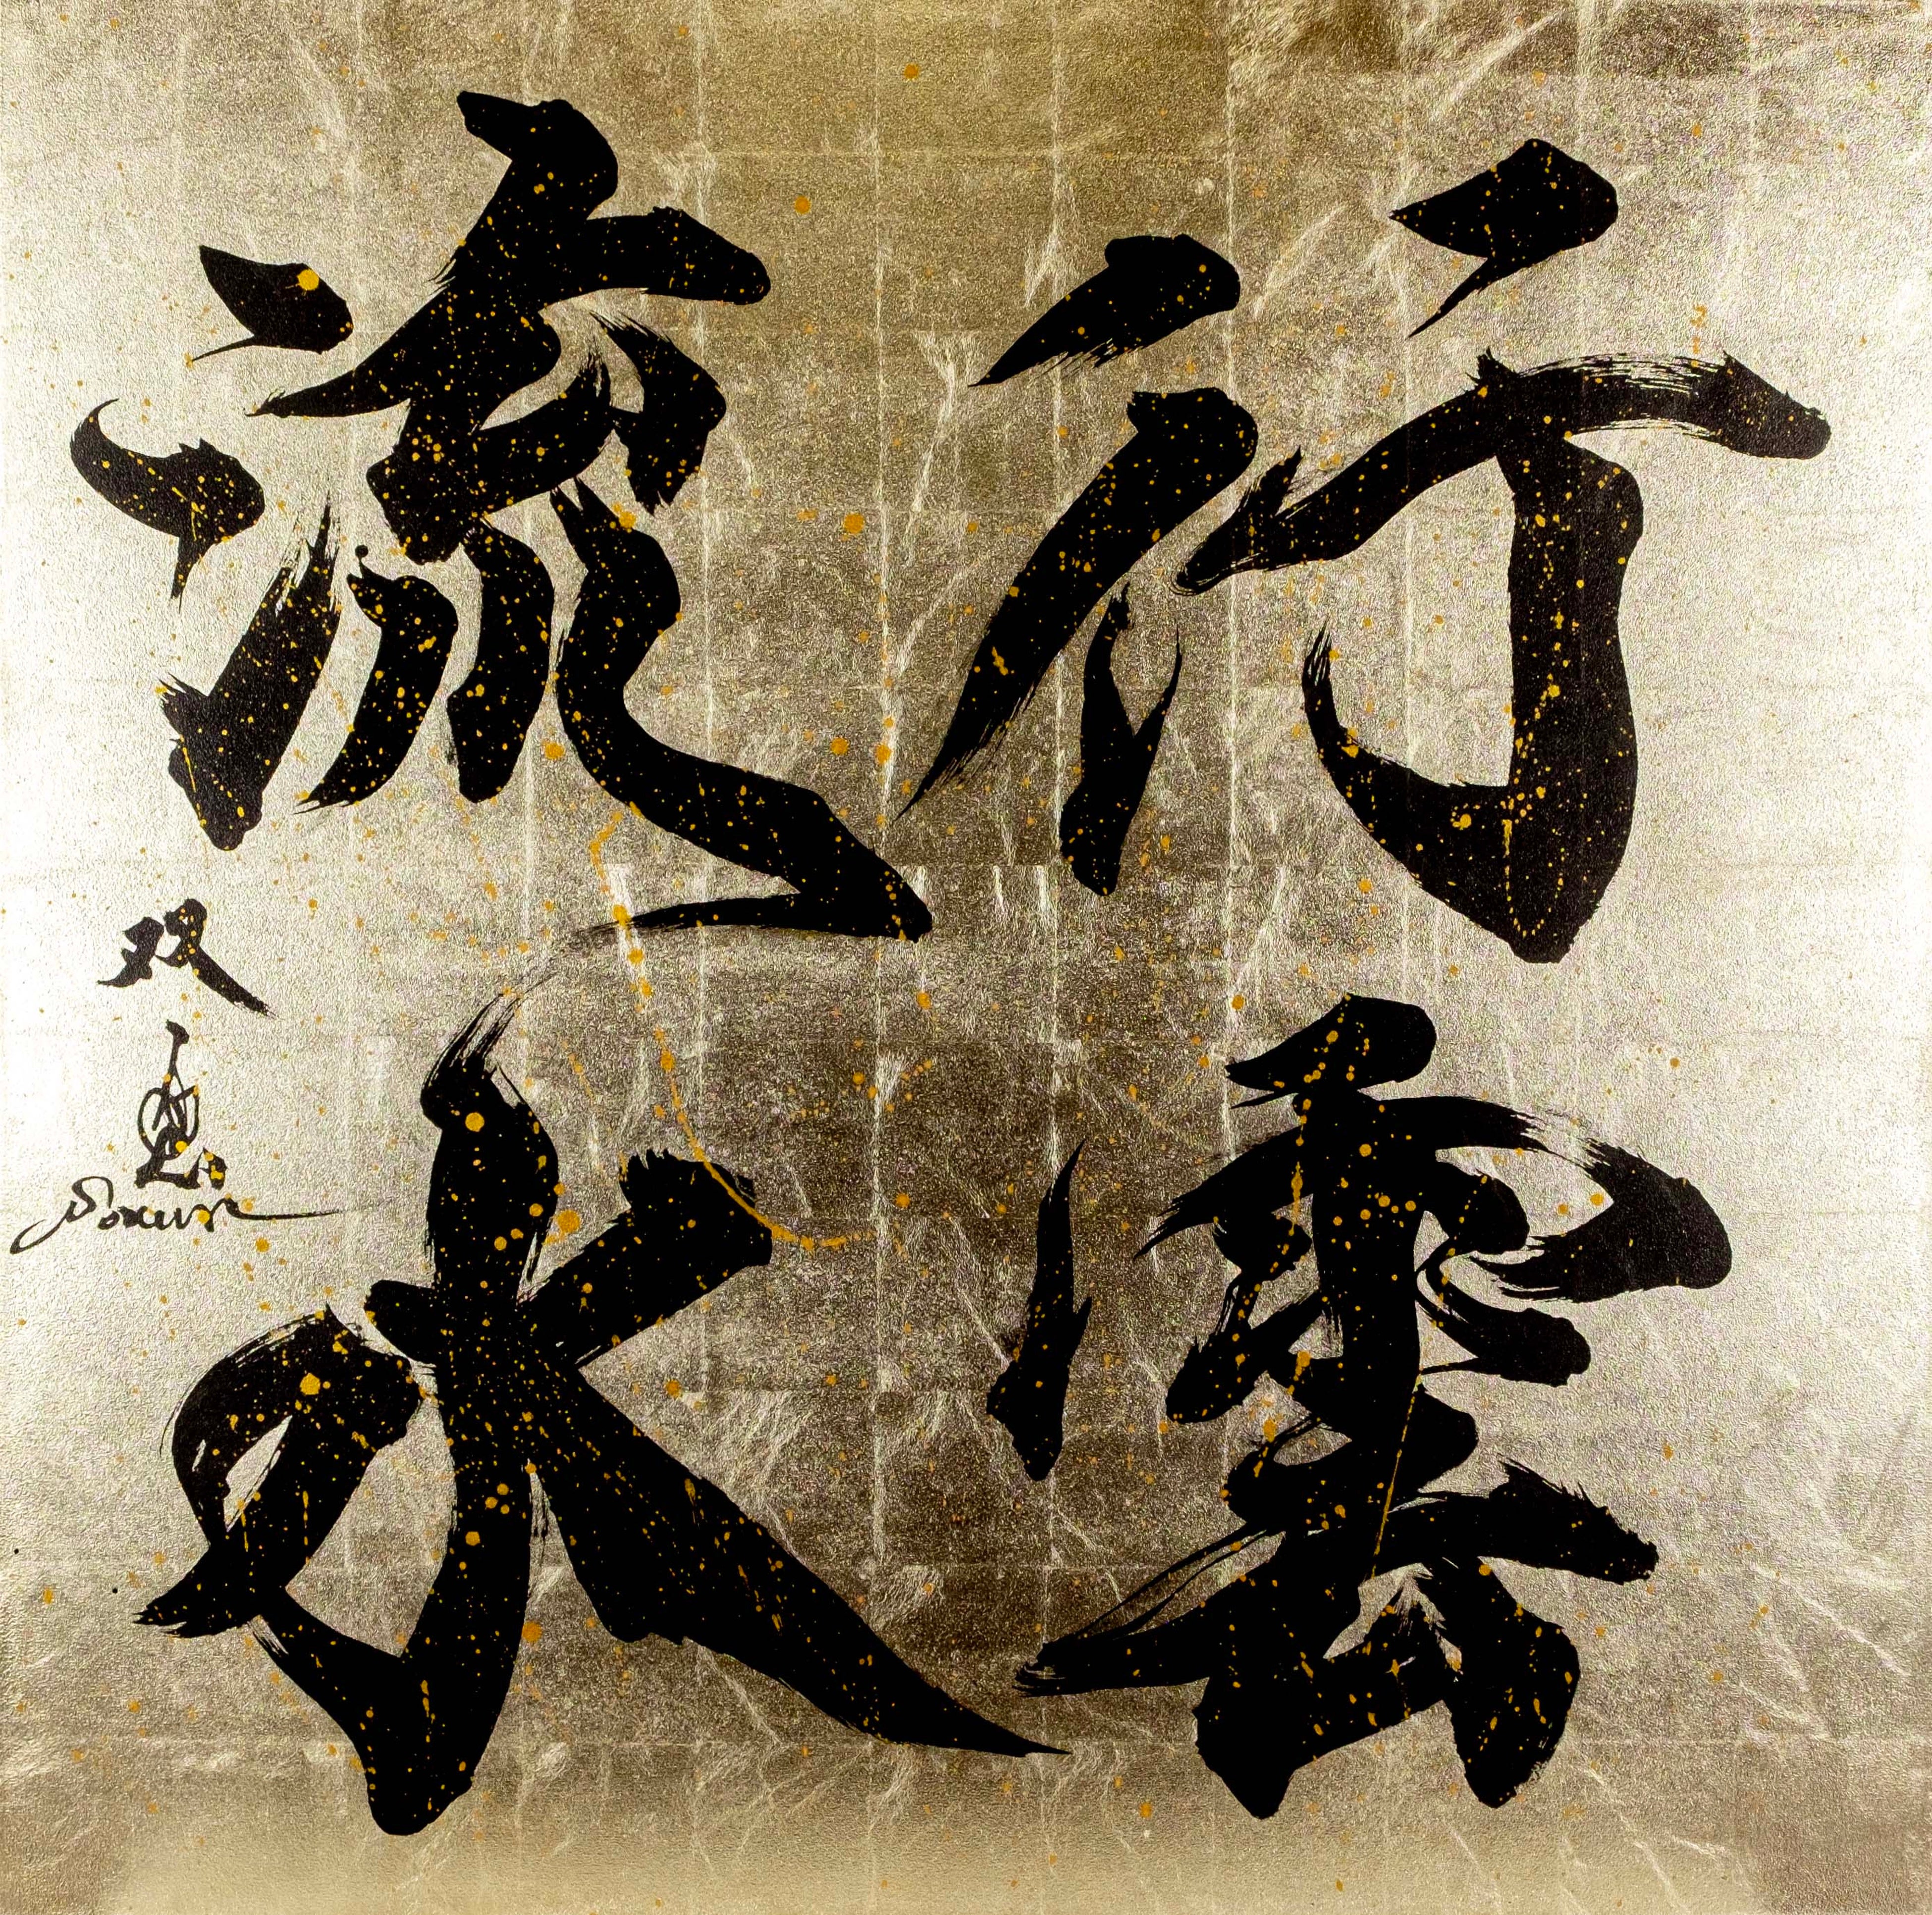 行雲
流水
双鳳
Soxun